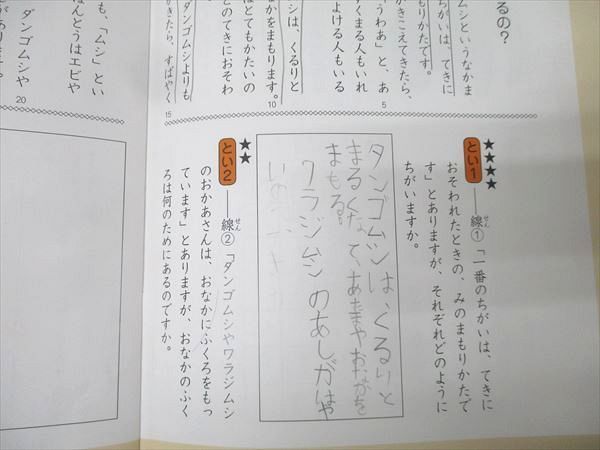 るの？
ムシというなかま
ちがいは、てきに
もりかたです。
がきこえてきたら、
うわあ」と、あ
すくまる人もいれ
よける人もいる
5
シは、くるりと
なかをまもります。
はとてもかたいの
とのてきにおそわ
10
ダンゴムシよりも
きたら、すばやく
15
も、「ムシ」とい
ほんとうはエビや
ダンゴムシや
20
★★★★
とい1
──線①「一番のちがいは、てきに
せん
おそわれたときの、みのまもりかたで
す」とありますが、それぞれどのように
ちがいますか。
タンゴムシは、くるりと
まるくなって、あたまやおなかを
まもる。
ワラジムシのあしがはや
★★
とい2
──線②「ダンゴムシやワラジムシ
せん
のおかあさんは、おなかにふくろをもっ
ています」とありますが、おなかのふく
ろは何のためにあるのですか。